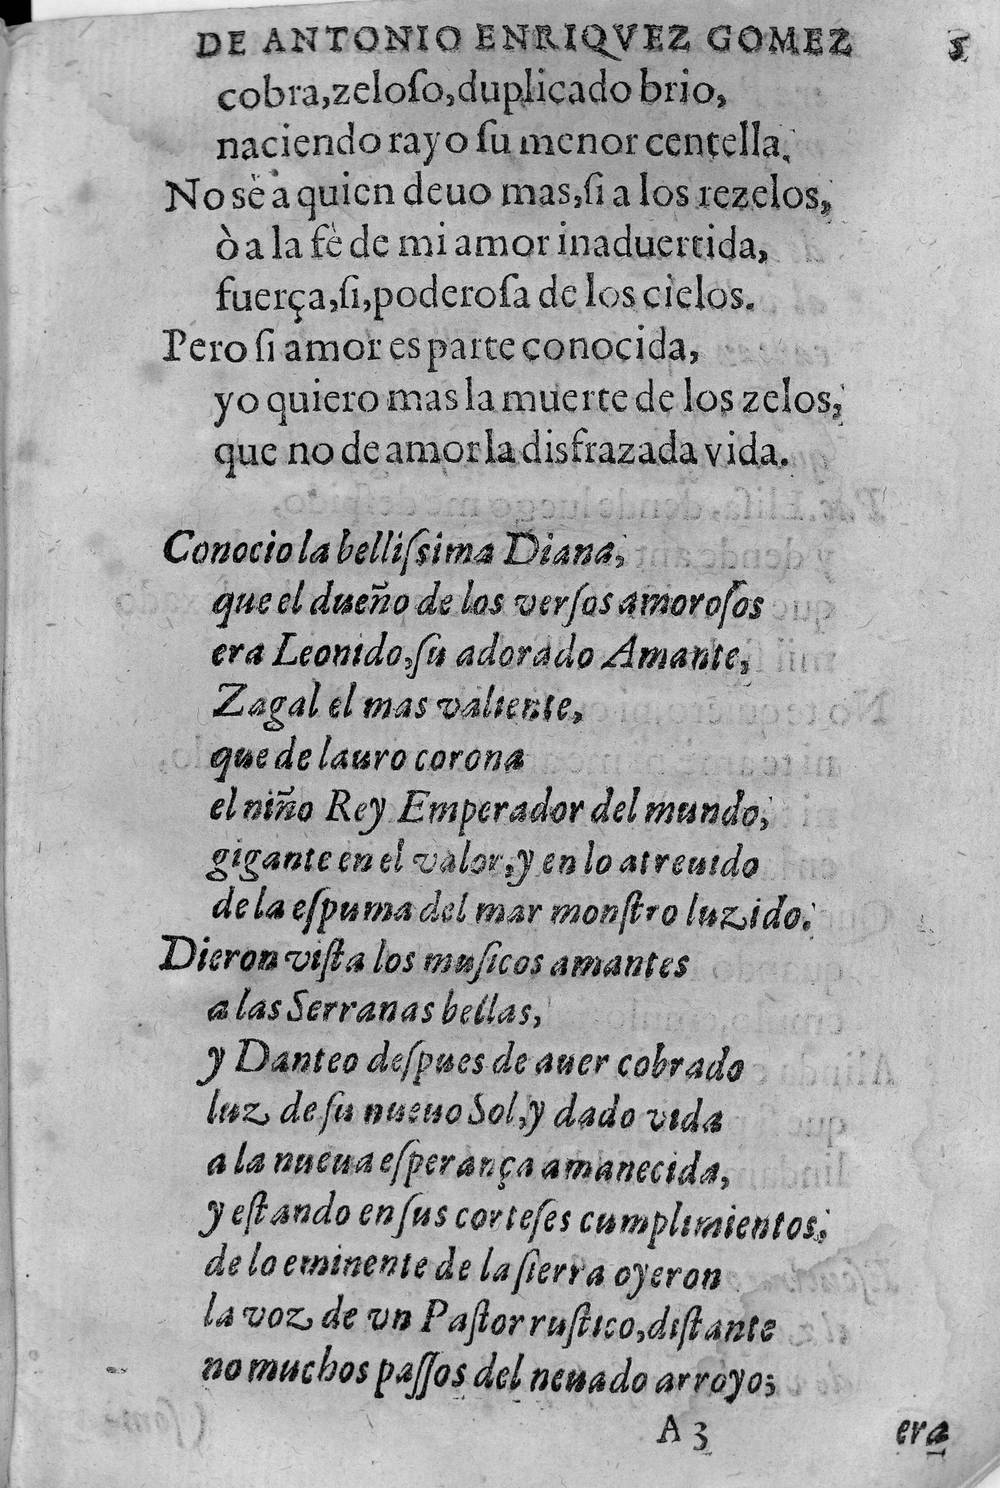 DE ANTONIO ENRIQVEZ GOMEZ 5
cobra,zeloſo,duplicado brio,
naciendo rayo ſu menor centella.
No sè a quien deuo mas,ſi a los rezelos,
ò a la fè de mi amor inaduertida,
fuerça,ſi,poderoſa de los cielos.
Pero ſi amor es parte conocida,
yo quiero mas la muerte de los zelos,
que no de amor la disfrazada vida.
Conocio la belliſsima Diana,
que el dueño de los verſos amoroſos
era Leonido,ſu adorado Amante,
Zagal el mas valiente,
que de lauro corona
el niño Rey Emperador del mundo,
gigante en el valor,y en lo atreuido
de la eſpuma del mar monſtro luzido.
Dieron viſta los muſicos amantes
a las Serranas bellas,
y Danteo deſpues de auer cobrado
luz de ſu nueuo Sol,y dado vida
a la nueua eſperança amanecida,
y eſtando en ſus corteſes cumplimientos,
de lo eminente de la ſierra oyeron
la voz de vn Paſtor ruſtico,diſtante
no muchos paſſos del neuado arroyo;
A 3 era